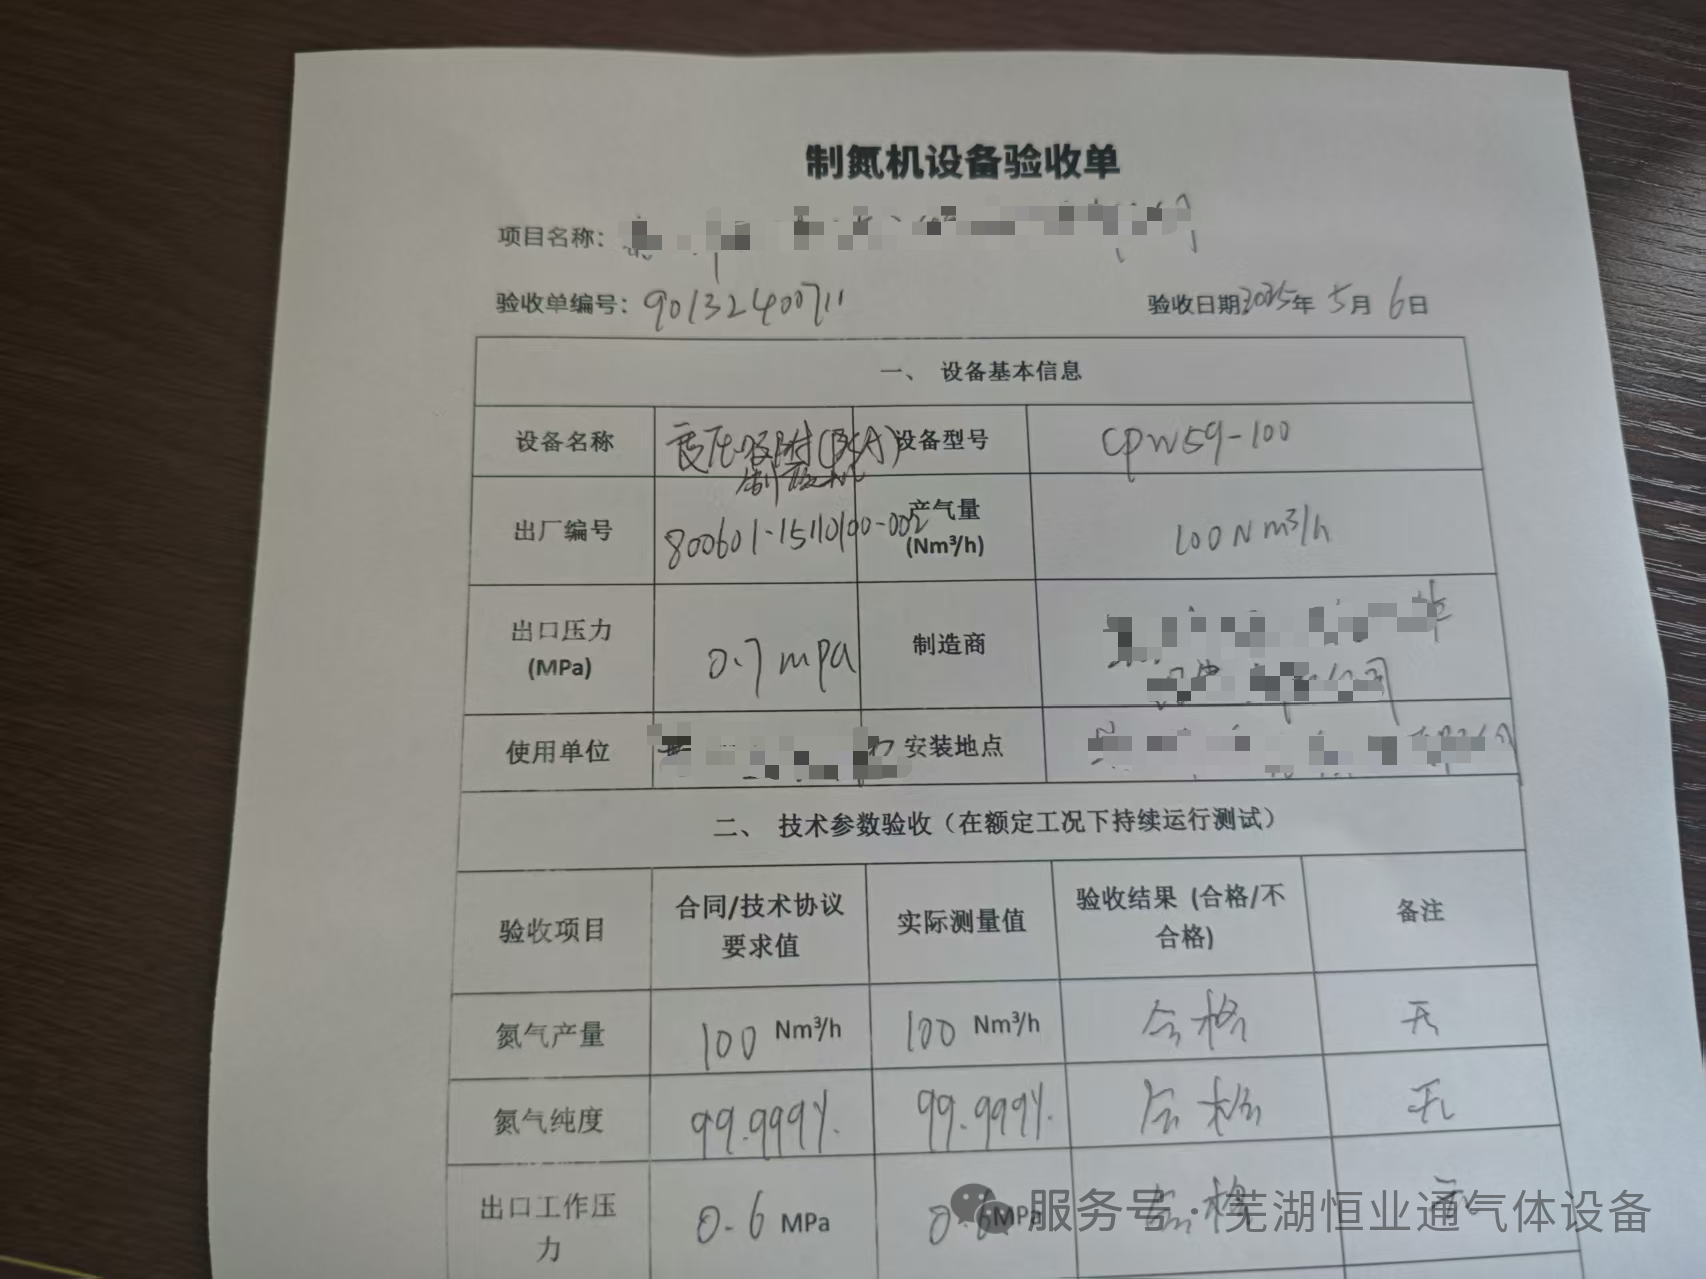 制氮机设备验收单
项目名称：
验收单编号：90132400711 验收日期2025年5月6日
一、 设备基本信息
设备名称 变压吸附(PSA)制氮机 设备型号 CPW59-100
出厂编号 800601-15110100-002 产气量(Nm³/h) 100Nm³/h
出口压力(MPa) 0.7mpa 制造商
使用单位 安装地点
二、 技术参数验收（在额定工况下持续运行测试）
验收项目 合同/技术协议要求值 实际测量值 验收结果 (合格/不合格) 备注
氮气产量 100 Nm³/h 100 Nm³/h 合格 无
氮气纯度 99.999% 99.999% 合格 无
出口工作压力 0.6 MPa 0.6 MPa 合格 无
服务号·芜湖恒业通气体设备